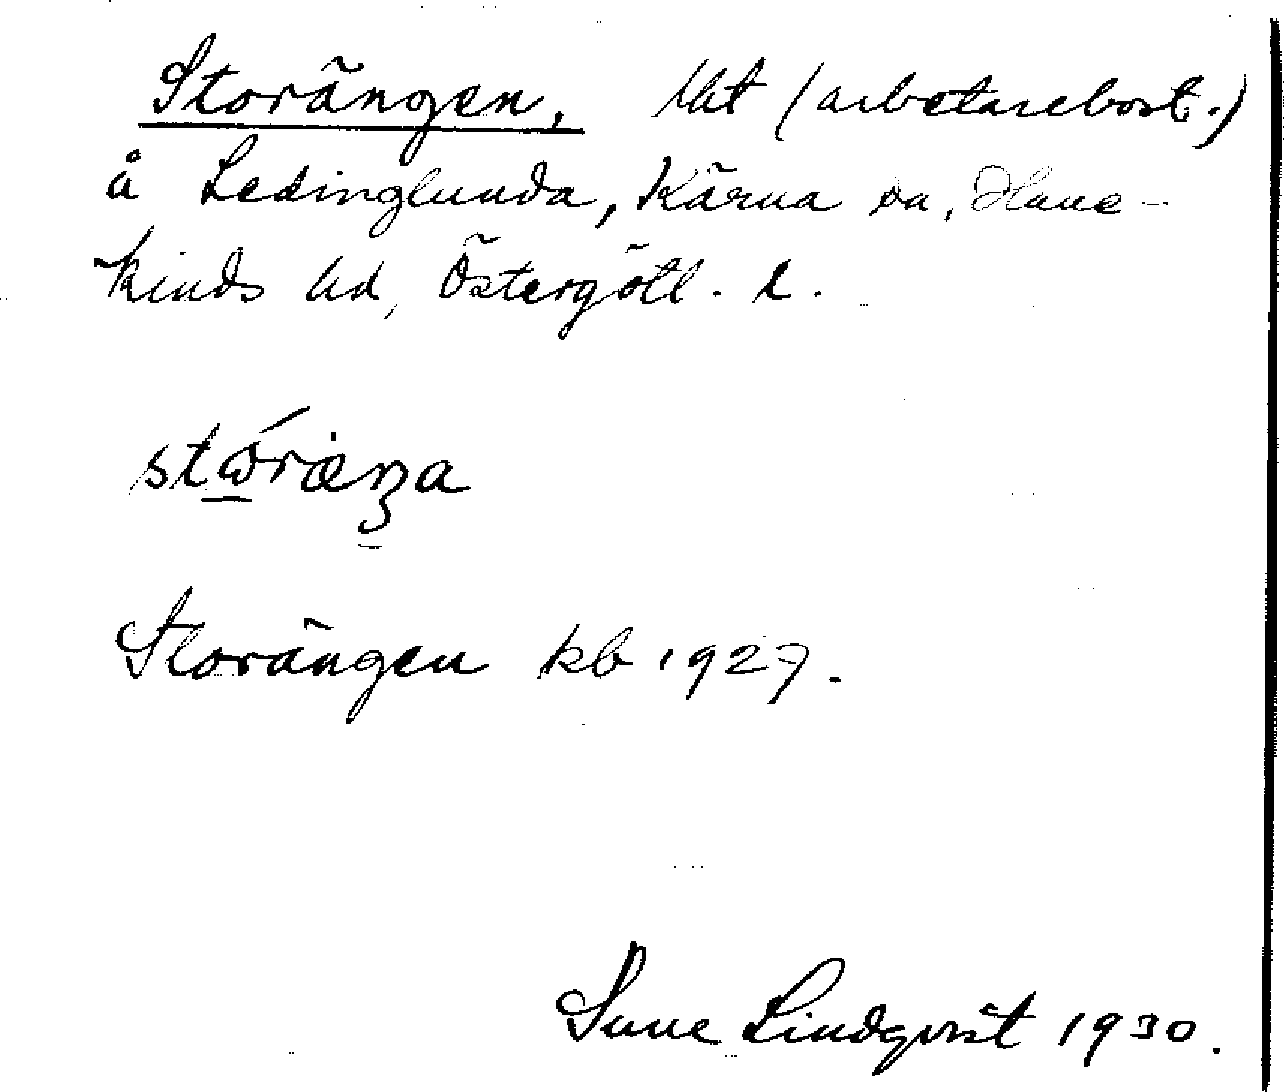 Storängen, lht (arbetarebost.)
å Ledinglunda, Kärna sn, Hane-
kinds hd, Östergötl. l.
storäŋa
Storängen kb 1927.
Sune Lindqvist 1930.